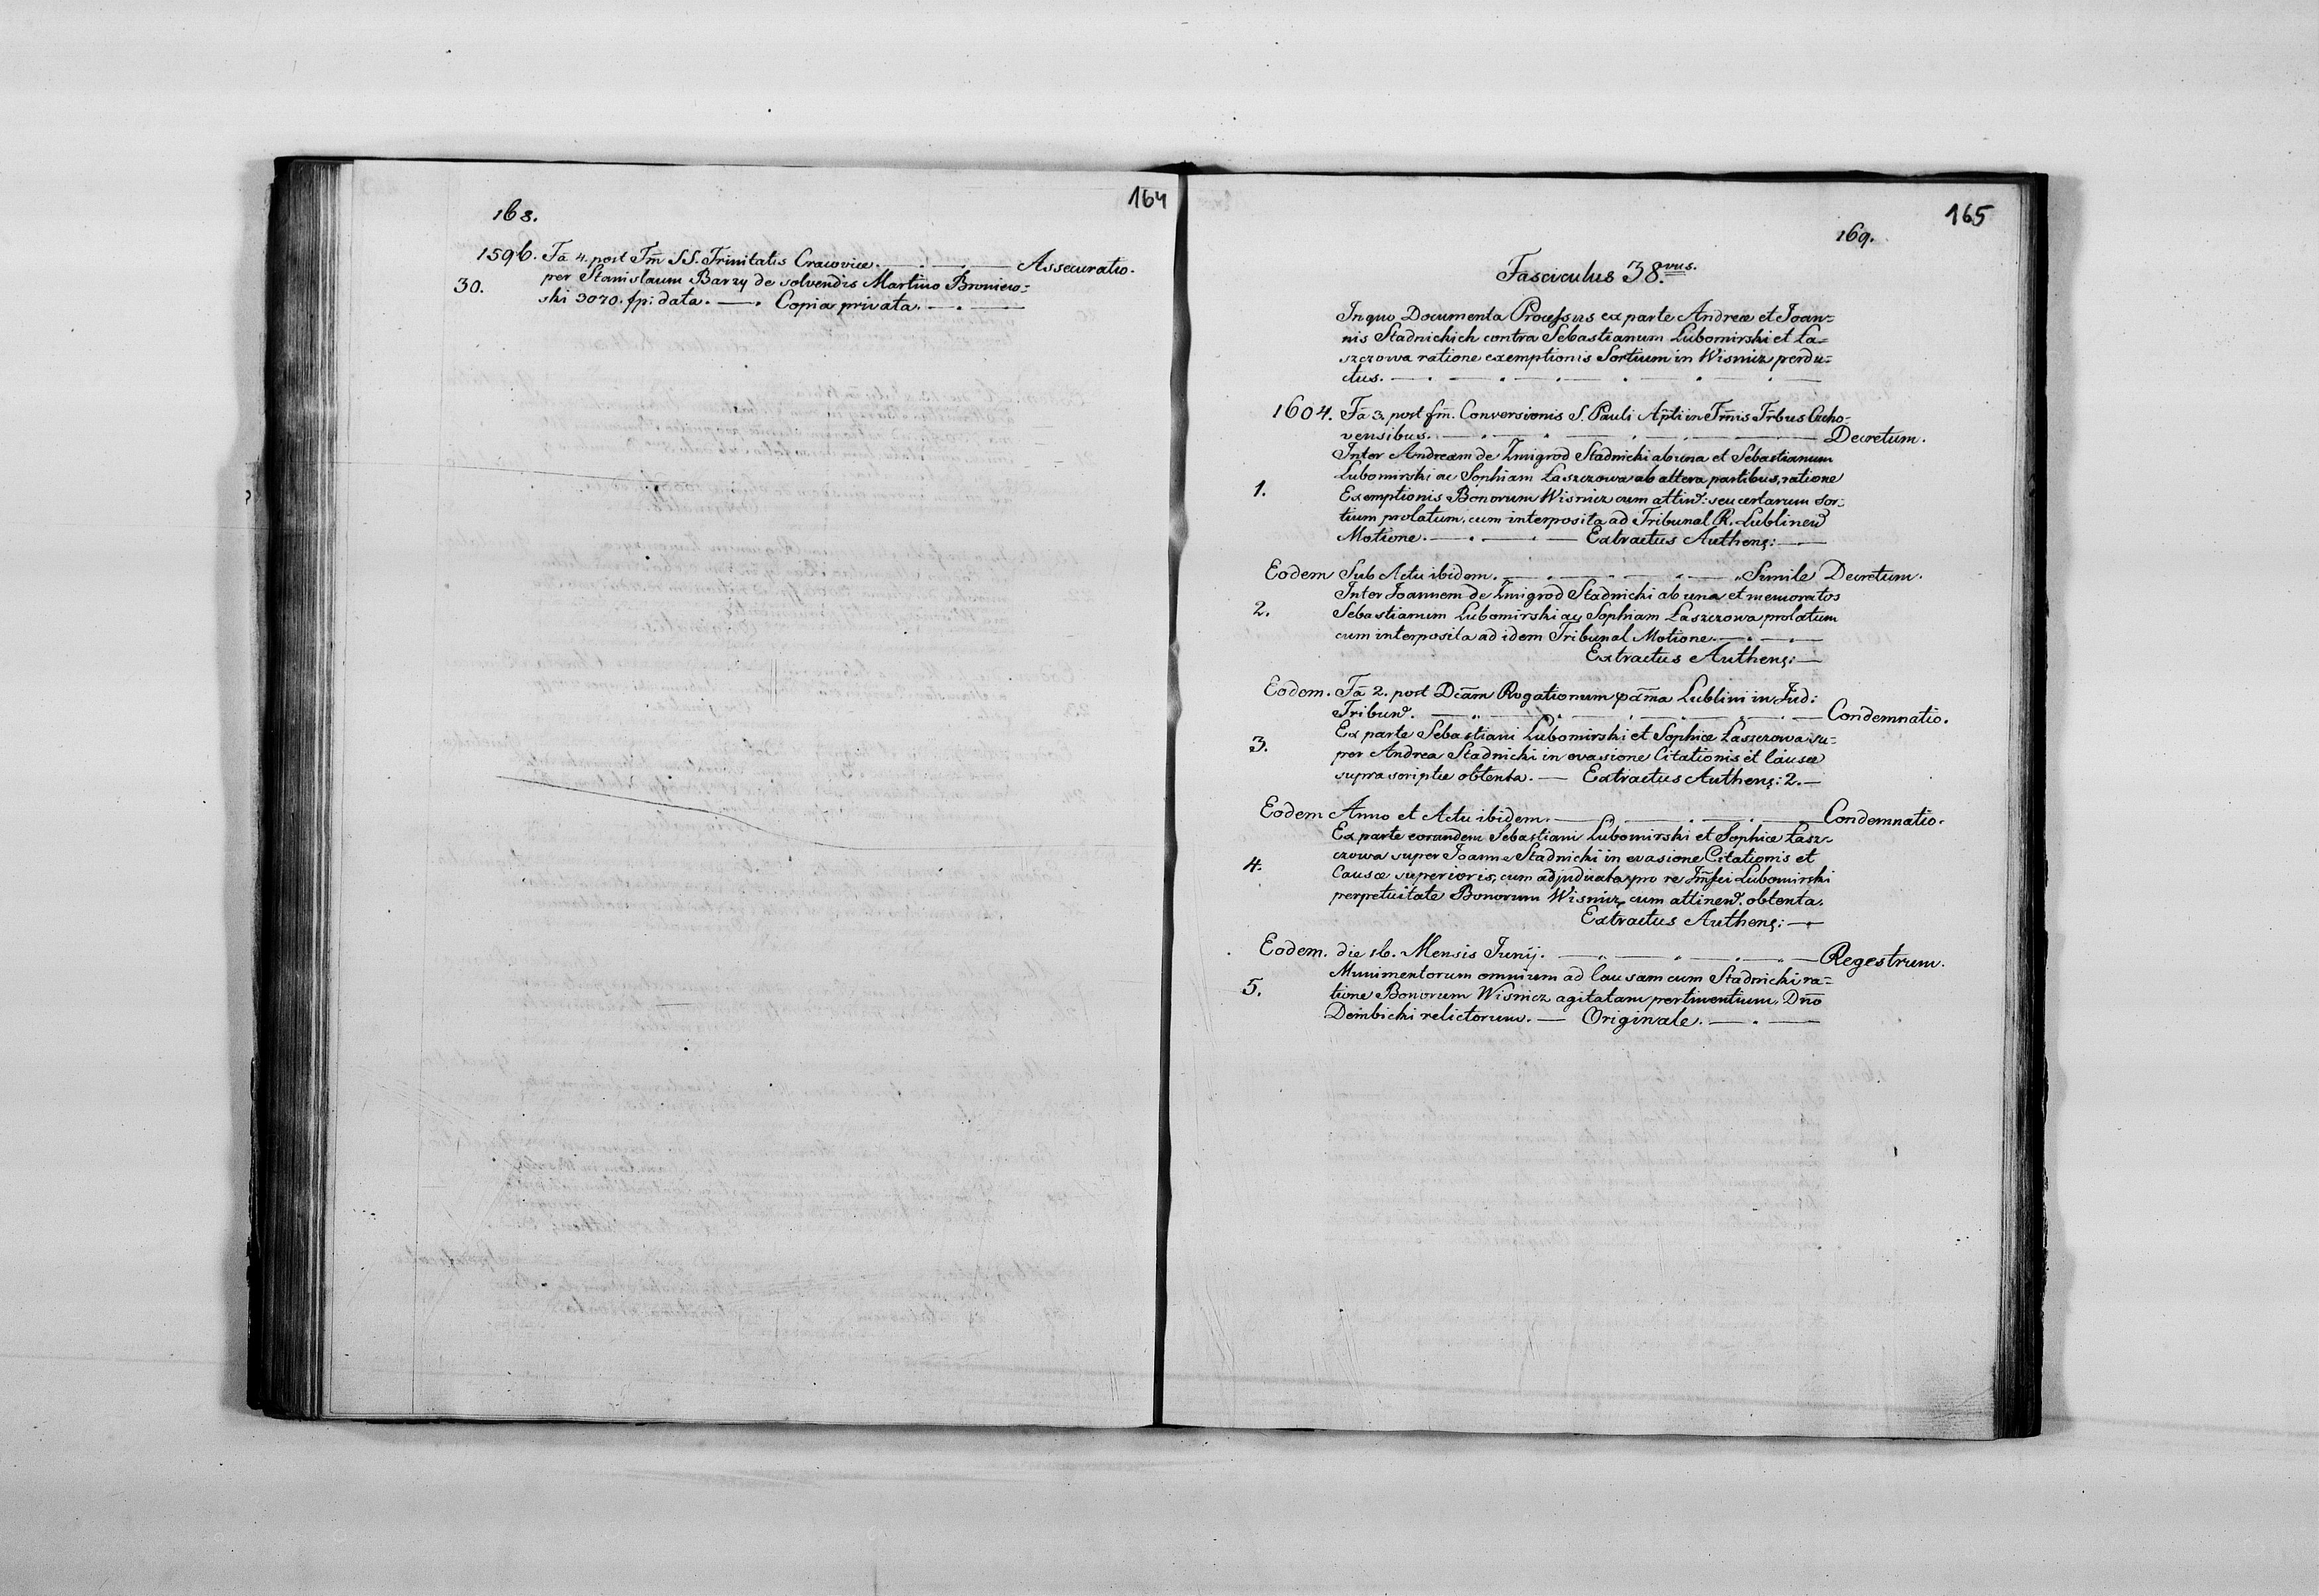 164
168.
1596. Fa 4. post Fm̄ SS. Trinitatis Cracoviæ. — Assecuratio.
30. per Stanislaum Barzy de solvendis Martino Broniew=
ski 3070. fp: data. — Copia privata. —
165
169.
Fasciculus 38.vus.
In quo Documenta Processus ex parte Andreæ et Joan=
nis Stadnickich contra Sebastianum Lubomirski et La=
szczowa ratione exemptionis Sortium in Wisnicz perdu=
ctus. —
1604. Fā 3. post fm̄. Conversionis S. Pauli Apῑi in Tm̄is Tr̄bus Czcho=
vensibus. — Decretum.
Inter Andream de Zmigrod Stadnicki ab una et Sebastianum
Lubomirski ac Sophiam Laszczowa ab altera partibus, ratione
1. Exemptionis Bonorum Wisnicz cum attin: seu certarum Sor=
tium prolatum, cum interposita ad Tribunal R. Lublinen
Motione. — Extractus Authens: —
Eodem Sub Actu ibidem. — Simile Decretum.
Inter Joannem de Zmigrod Stadnicki ab una et memoratos
2. Sebastianum Lubomirski ac Sophiam Laszczowa prolatum
cum interposita ad idem Tribunal Motione. —
Extractus Authens: —
Eodem. Fā 2. post Dcām Rogationum pd̄ma Lublini in Jud:
Tribun. — Condemnatio.
Ex parte Sebastiani Lubomirski et Sophiæ Laszczowa su=
3. per Andrea Stadnicki in evasione Citationis et Causæ
suprascriptæ obtenta. — Extractus Authens: 2. —
Eodem Anno et Actu ibidem. — Condemnatio.
Ex parte eorundem Sebastiani Lubomirski et Sophiæ Lasz=
czowa super Joanne Stadnicki in evasione Citationis et
4. Causæ superioris, cum adjudicata pro re Jm̄sci Lubomirski
perpetuitate Bonorum Wisnicz cum attinen. obtenta.
Extractus Authens: —
Eodem. die 16. Mensis Junij. — Regestrum.
Munimentorum omnium ad Causam cum Stadnicki ra=
5. tione Bonorum Wisnicz agitatam pertinentium, Dn̄o
Dembicki relictorum. — Originale. —